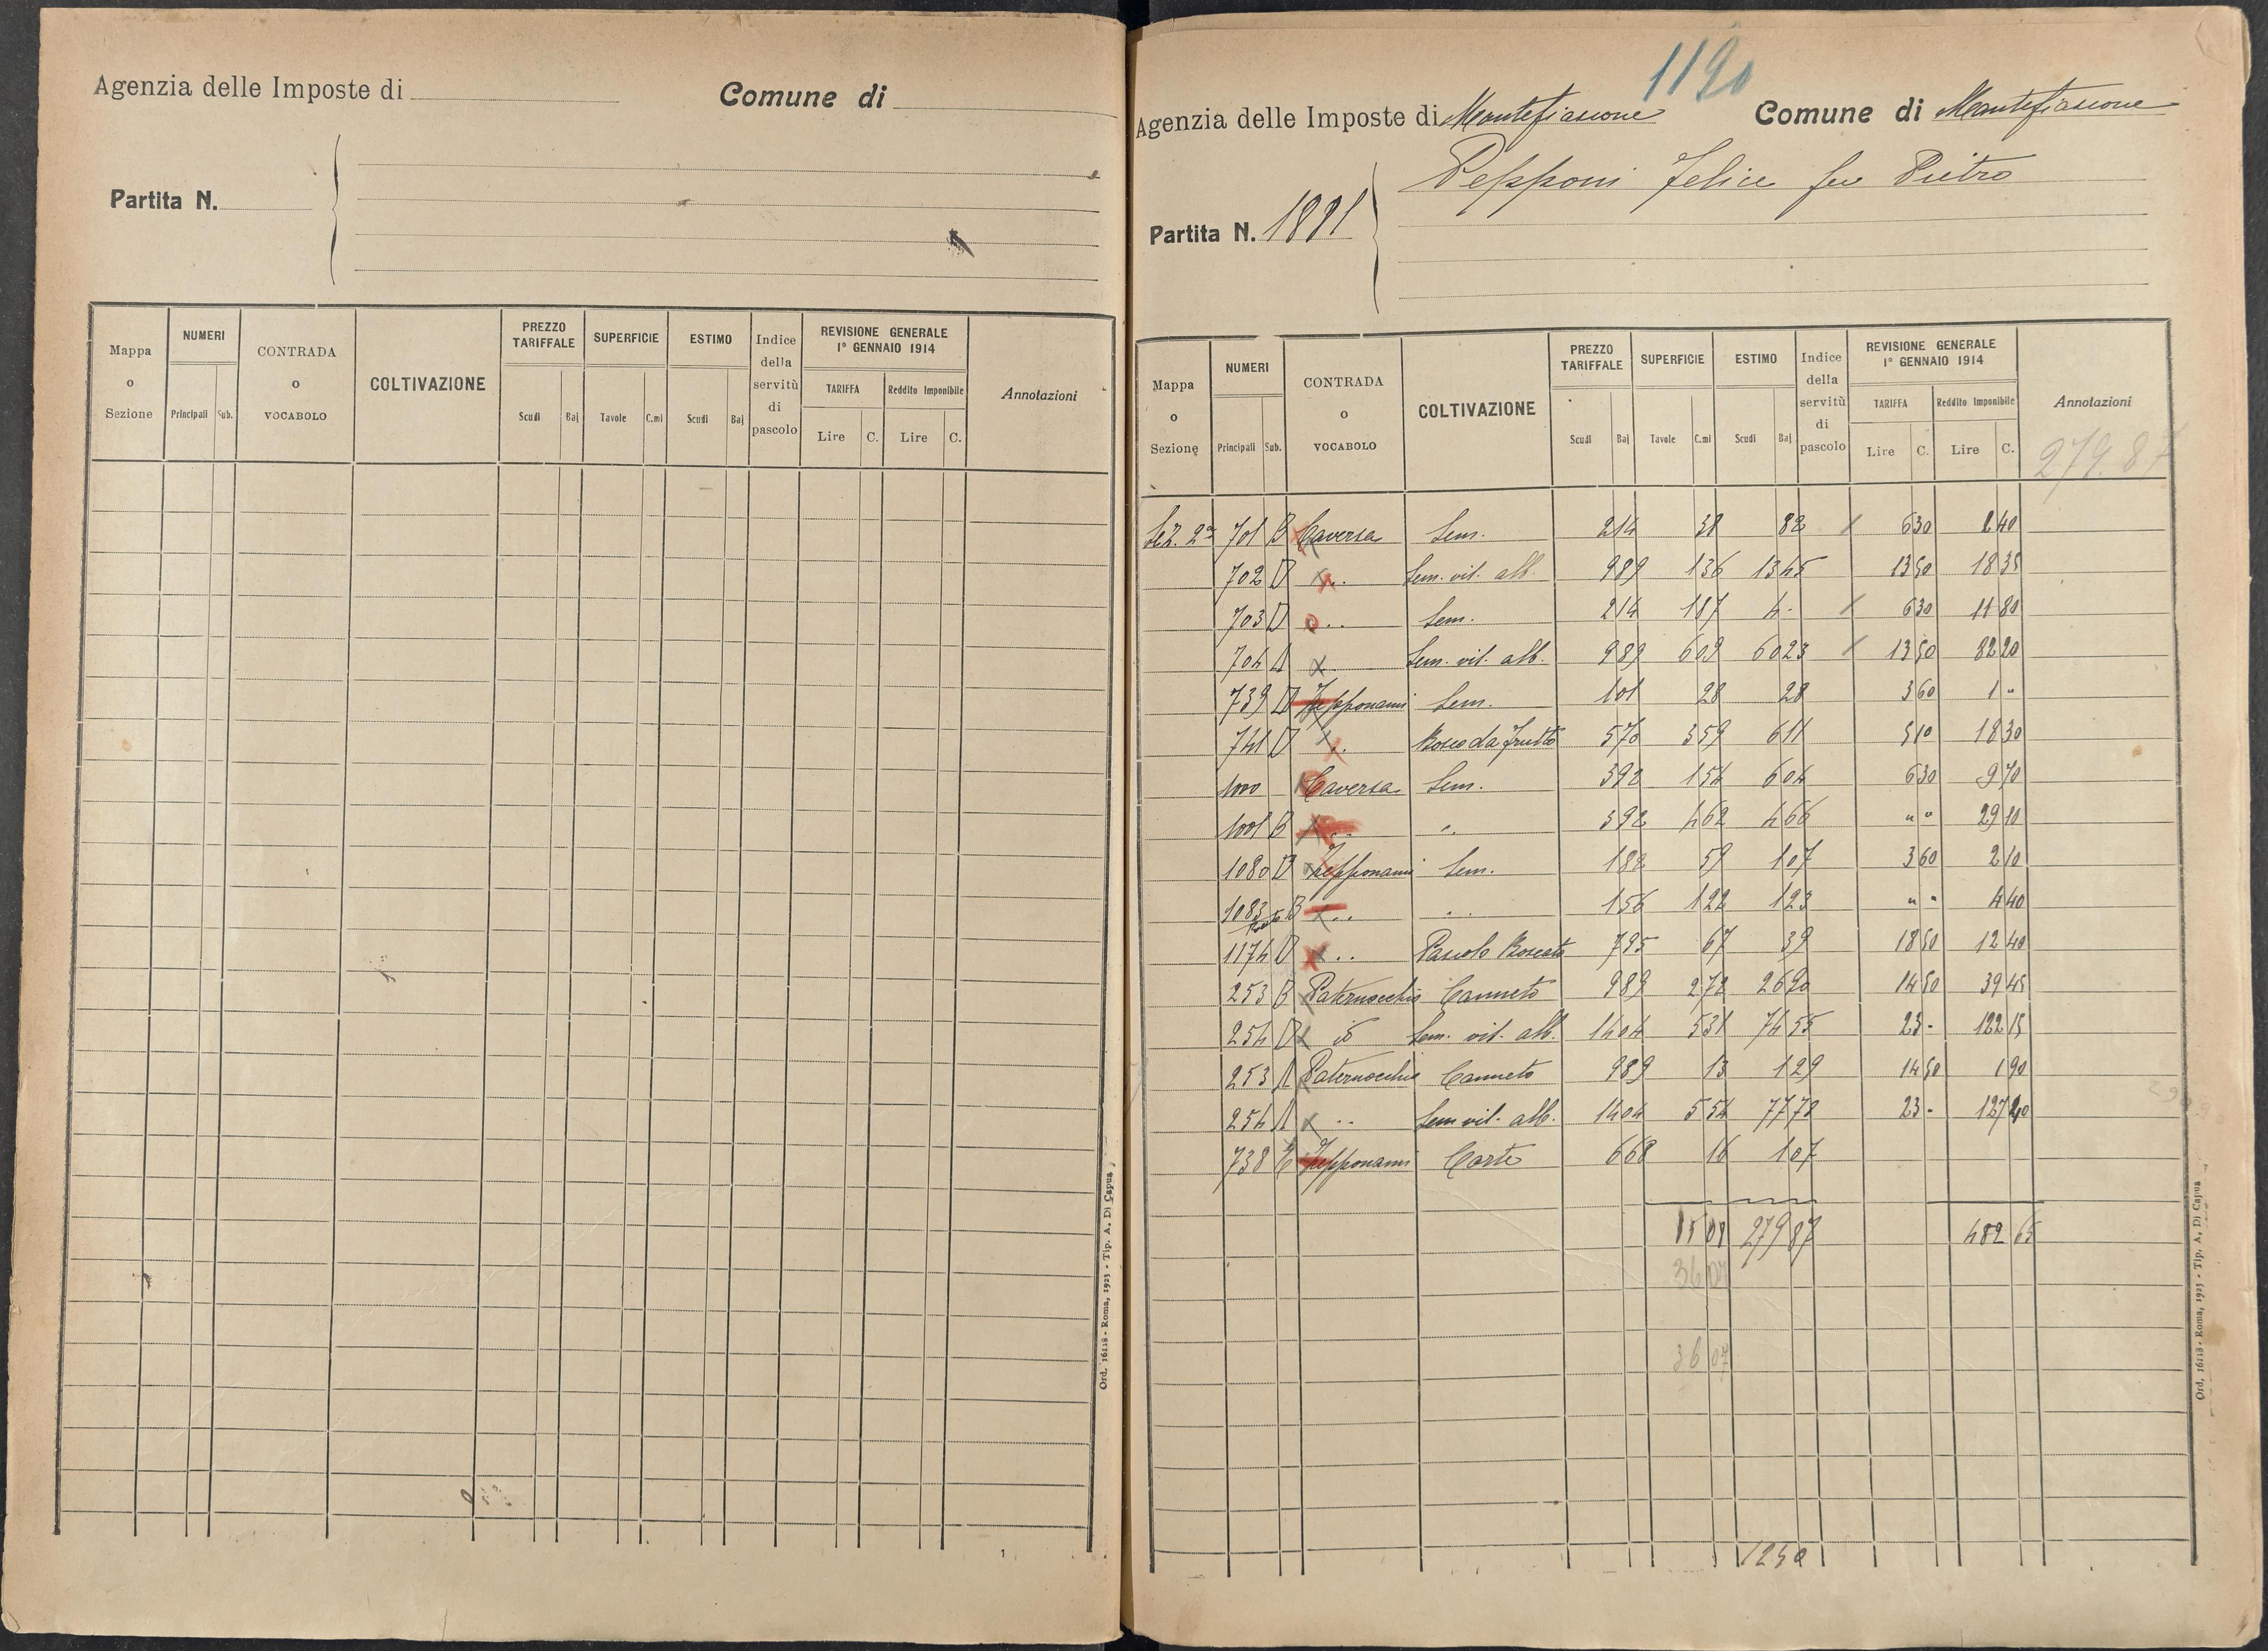 Agenzia delle Imposte di
Comune di
Partita N.
Mappa o Sezione
NUMERI
Principali Sub.
CONTRADA o VOCABOLO
COLTIVAZIONE
PREZZO TARIFFALE
Scudi Baj
SUPERFICIE
Tavole C.mi
ESTIMO
Scudi Baj
Indice della servitù di pascolo
REVISIONE GENERALE
1° GENNAIO 1914
TARIFFA Reddito Imponibile
Lire C. Lire C.
Annotazioni
Ord. 16118 - Roma, 1923 - Tip. A. Di Capua
1190
Agenzia delle Imposte di Montefiascone Comune di Montefiascone
Pepponi Felice fu Pietro
Partita N. 1891
Mappa o Sezione
NUMERI
Principali Sub.
CONTRADA o VOCABOLO
COLTIVAZIONE
PREZZO TARIFFALE
Scudi Baj
SUPERFICIE
Tavole C.mi
ESTIMO
Scudi Baj
Indice della servitù di pascolo
REVISIONE GENERALE
1° GENNAIO 1914
TARIFFA Reddito Imponibile
Lire C. Lire C.
Annotazioni
279.87
Sez. 2ª 701 B Caversa Sem. 214 38 82 6 30 2 40
702 Sem. vit. alb. 9 89 1 36 13 45 13 50 18 35
703 Sem. 2 14 1 87 4 - 6 30 11 80
704 A Sem. vit. alb. 9 89 6 09 60 23 13 50 82 20
739 Zepponami Sem. 1 01 28 28 3 60 1 "
741 Bosco da frutto 1 70 3 59 6 11 5 10 18 30
1000 Caversa Sem. 3 92 1 54 6 04 6 30 9 70
1001 B " 4 62 4 66 " " 29 10
1080 Zepponami Sem. 1 82 59 1 07 3 60 2 10
1083 B 1 22 1 23 " " 4 40
1174 Pascolo Boscato 67 39 18 50 12 40
253 B Paternocchio Canneto 9 89 2 72 26 90 14 50 39 45
254 Sem. vit. alb. 14 04 5 31 74 55 23 - 122 15
253 A Paternocchio Canneto 9 89 13 1 29 14 50 1 90
254 A Sem. vit. alb. 14 04 5 54 77 78 23 - 127 40
738 Zepponami Corte 6 68 16 1 07
279 87 482 65
36 07
36 07
1250
Ord. 16118 - Roma, 1923 - Tip. A. Di Capua